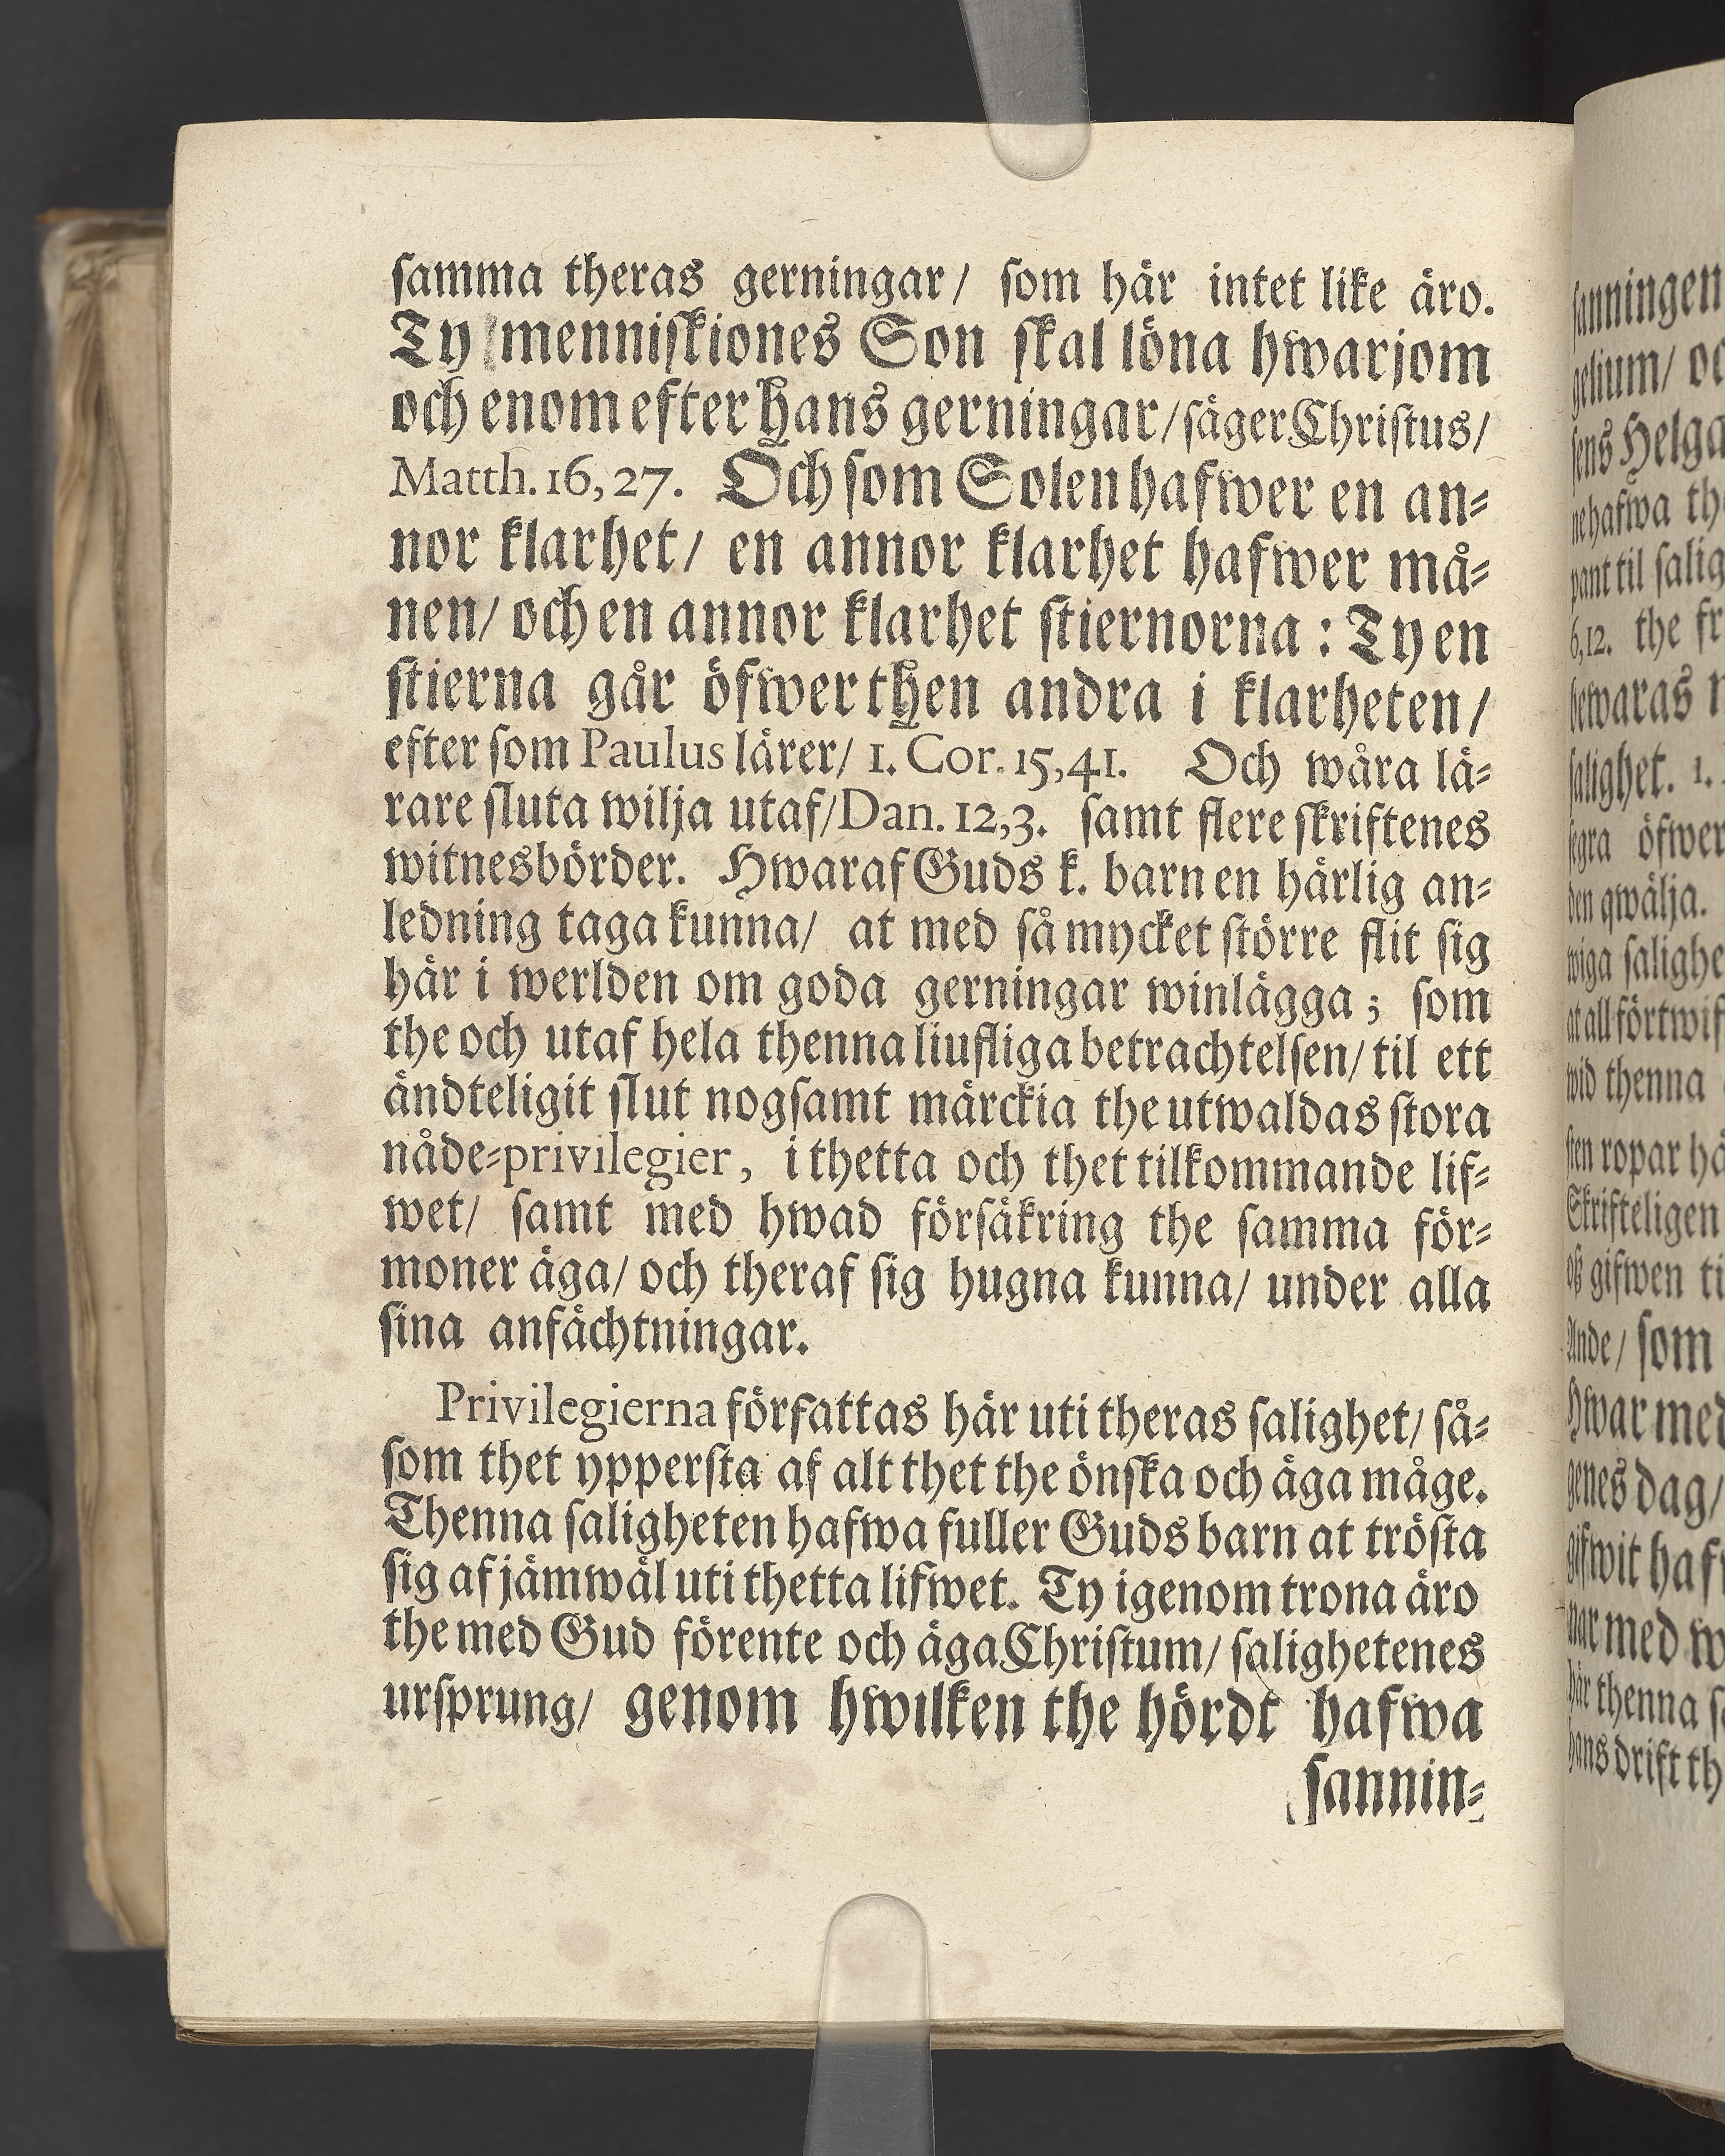 samma theras gerningar/ som här intet like äro.
Ty menniskiones Son skal löna hwarjom
och enom efter hans gerningar/ säger Christus/
Matth. 16, 27. Och som Solen hafwer en an=
nor klarhet/ en annor klarhet hafwer må=
nen/ och en annor klarhet stiernorna : Ty en
stierna går öfwer then andra i klarheten/
efter som Paulus lärer/ 1. Cor. 15, 41. Och wåra lä=
rare sluta wilja utaf/ Dan. 12, 3. samt flere skriftenes
witnesbörder. Hwaraf Guds k. barn en härlig an=
ledning taga kunna/ at med så mycket större flit sig
här i werlden om goda gerningar winlägga; som
the och utaf hela thenna liufliga betrachtelsen/ til ett
ändteligit slut nogsamt märckia the utwaldas stora
nåde=privilegier, i thetta och thet tilkommande lif=
wet/ samt med hwad försäkring the samma för=
moner äga/ och theraf sig hugna kunna/ under alla
sina anfächtningar.
Privilegierna författas här uti theras salighet/ så=
som thet yppersta af alt thet the önska och äga måge.
Thenna saligheten hafwa fuller Guds barn at trösta
sig af jämwäl uti thetta lifwet. Ty igenom trona äro
the med Gud förente och äga Christum/ salighetenes
ursprung/ genom hwilken the hördt hafwa
sannin=
sanningen
gelium/
sens Helga
nehafwa
pant til
6, 12. the
bewaras
salighet. 1.
segra öfwer
den qwälja.
wiga
at all
wid thenna
sten ropar
Skrifteligen
oß gifwen
Ande/ som
Hwar med
genes dag/
gifwit
nar med
här thenna
hans drift